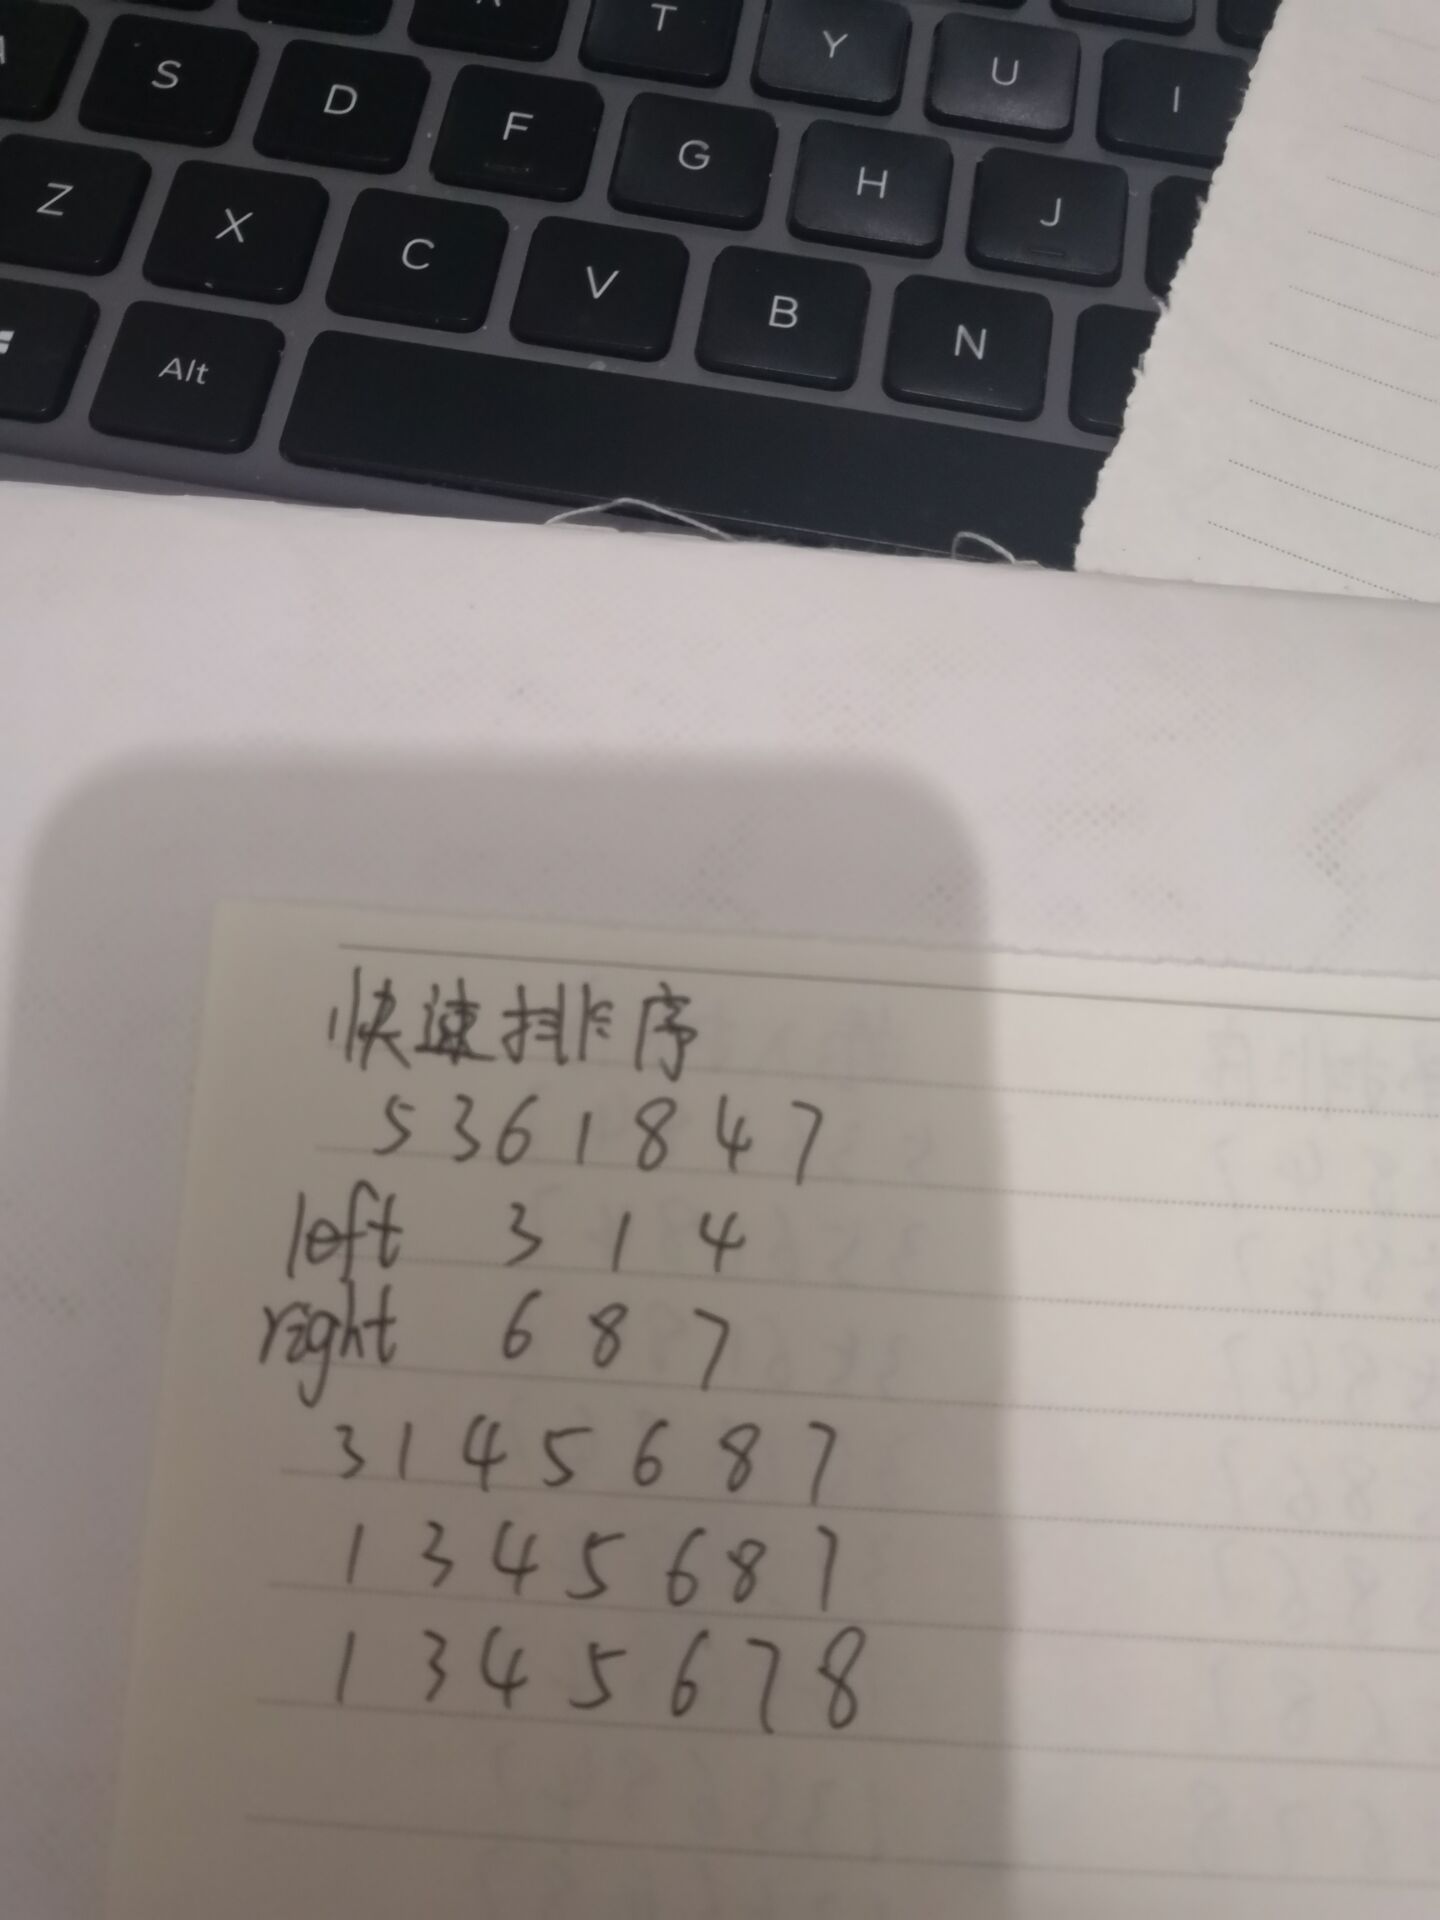 T Y U I
S D F G H J
Z X C V B N
Alt
快速排序
5 3 6 1 8 4 7
left 3 1 4
right 6 8 7
3 1 4 5 6 8 7
1 3 4 5 6 8 7
1 3 4 5 6 7 8